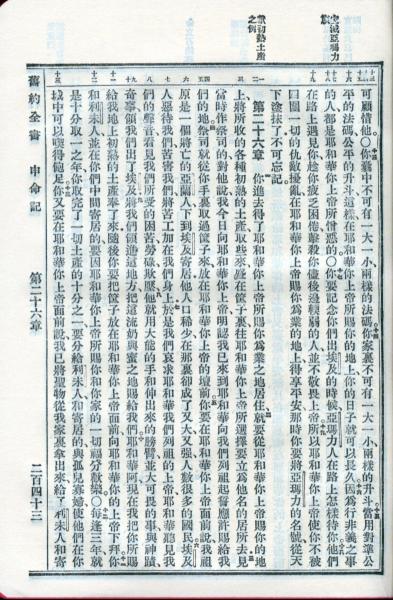 宜滅亞瑪力族
獻初熟土產之例
可顧惜他○你囊中不可有一大一小兩樣的法碼你家裏不可有一大一小兩樣的升斗當用對準公
平的法碼公平的升斗這樣在耶和華你上帝所賜你的地上你的日子就可以長久因為行非義之事
的人都是耶和華你上帝所憎惡的○你要記念你們出埃及的時候亞瑪力人在路上怎樣待你他們
在路上遇見你趁你疲乏困倦擊殺你儘後邊軟弱的人並不敬畏上帝所以耶和華你上帝使你不被
四圍一切的仇敵擾亂在耶和華你上帝賜你為業的地上得享平安那時你要將亞瑪力的名號從天
下塗抹了不可忘記
第二十六章 你進去得了耶和華你上帝所賜你為業之地居住就要從耶和華你上帝賜你的地
上將所收的各種初熟的土產取些來盛在筐子裏往耶和華你上帝所選擇要立為他名的居所去見
當時作祭司的對他說我今日向耶和華你上帝明認我已來到耶和華向我們列祖起誓應許賜給我
們的地祭司就從你手裏取過筐子來放在耶和華你上帝的壇前你要在耶和華你上帝面前說我祖
原是一個將亡的亞蘭人下到埃及寄居他人口稀少在那裏卻成了又大又强人數很多的國民埃及
人惡待我們苦害我們將苦工加在我們身上於是我們哀求耶和華我們列祖的上帝耶和華聽見我
們的聲音看見我們所受的困苦勞碌欺壓他就用大能的手和伸出來的膀臂並大可畏的事與神蹟
奇事領我們出了埃及將我們領進這地方把這流奶與蜜之地賜給我們耶和華阿現在我把你所賜
給我地上初熟的土產奉了來隨後你要把筐子放在耶和華你上帝面前向耶和華你的上帝下拜你
和利未人並在你們中間寄居的要因耶和華你上帝所賜你和你家的一切福分歡樂○每逢三年就
是十分取一之年你取完了一切土產的十分之一要分給利未人和寄居的與孤兒寡婦使他們在你
城中可以喫得飽足你又要在耶和華你上帝面前說我已將聖物從我家裏拿出來給了利未人和寄
舊約全書 申命記 第二十六章 二百四十三